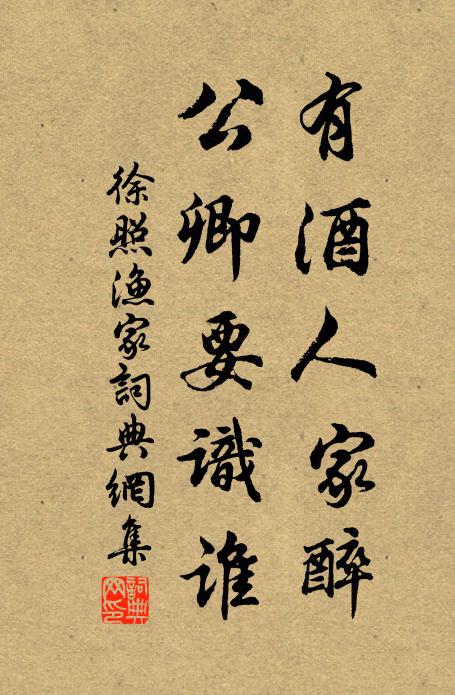 有酒人家醉
公卿要識誰
徐照漁家詞典網集
詞典網印